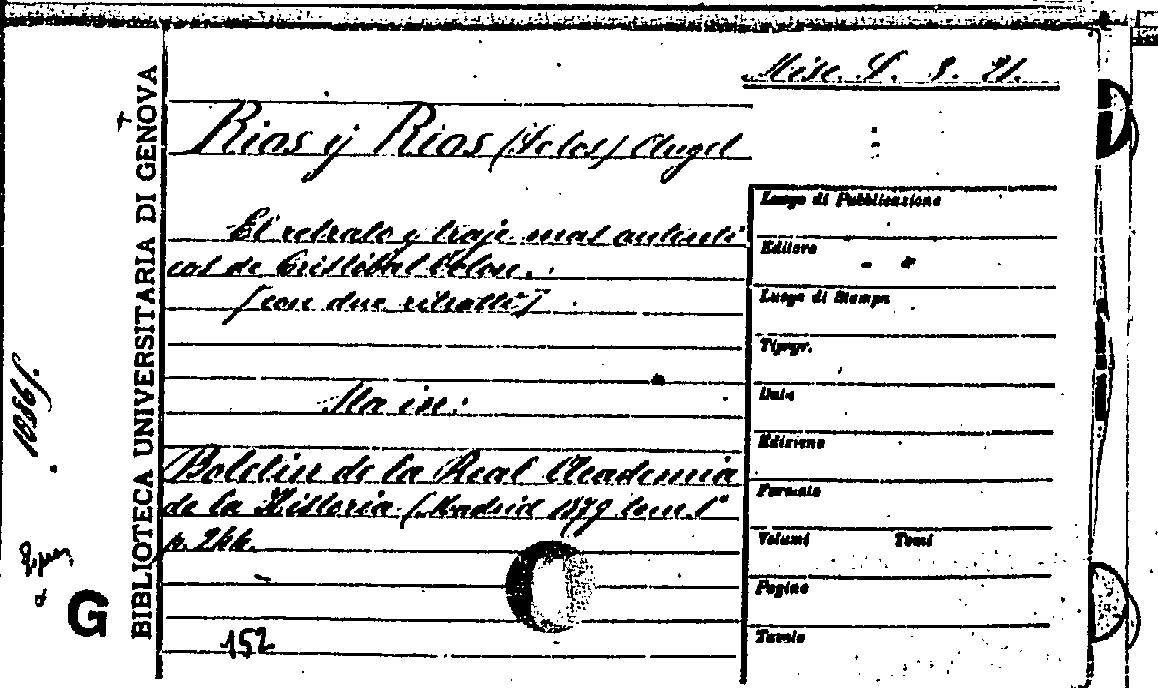 Misc. L. 3. 21.
BIBLIOTECA UNIVERSITARIA DI GENOVA
Rios y Rios (de los) Angel
El retrato y traje mas autenti
cos de Cristóbal Colon.
[con due ritratti]
Sta in:
Boletin de la Real Academia
de la Historia (Madrid 1879 tom. 1°
p. 244.
152
Luogo di Pubblicazione
Editore
Luogo di Stampa
Tipogr.
Data
Edizione
Formato
Volumi Tomi
Pagine
Tavole
G